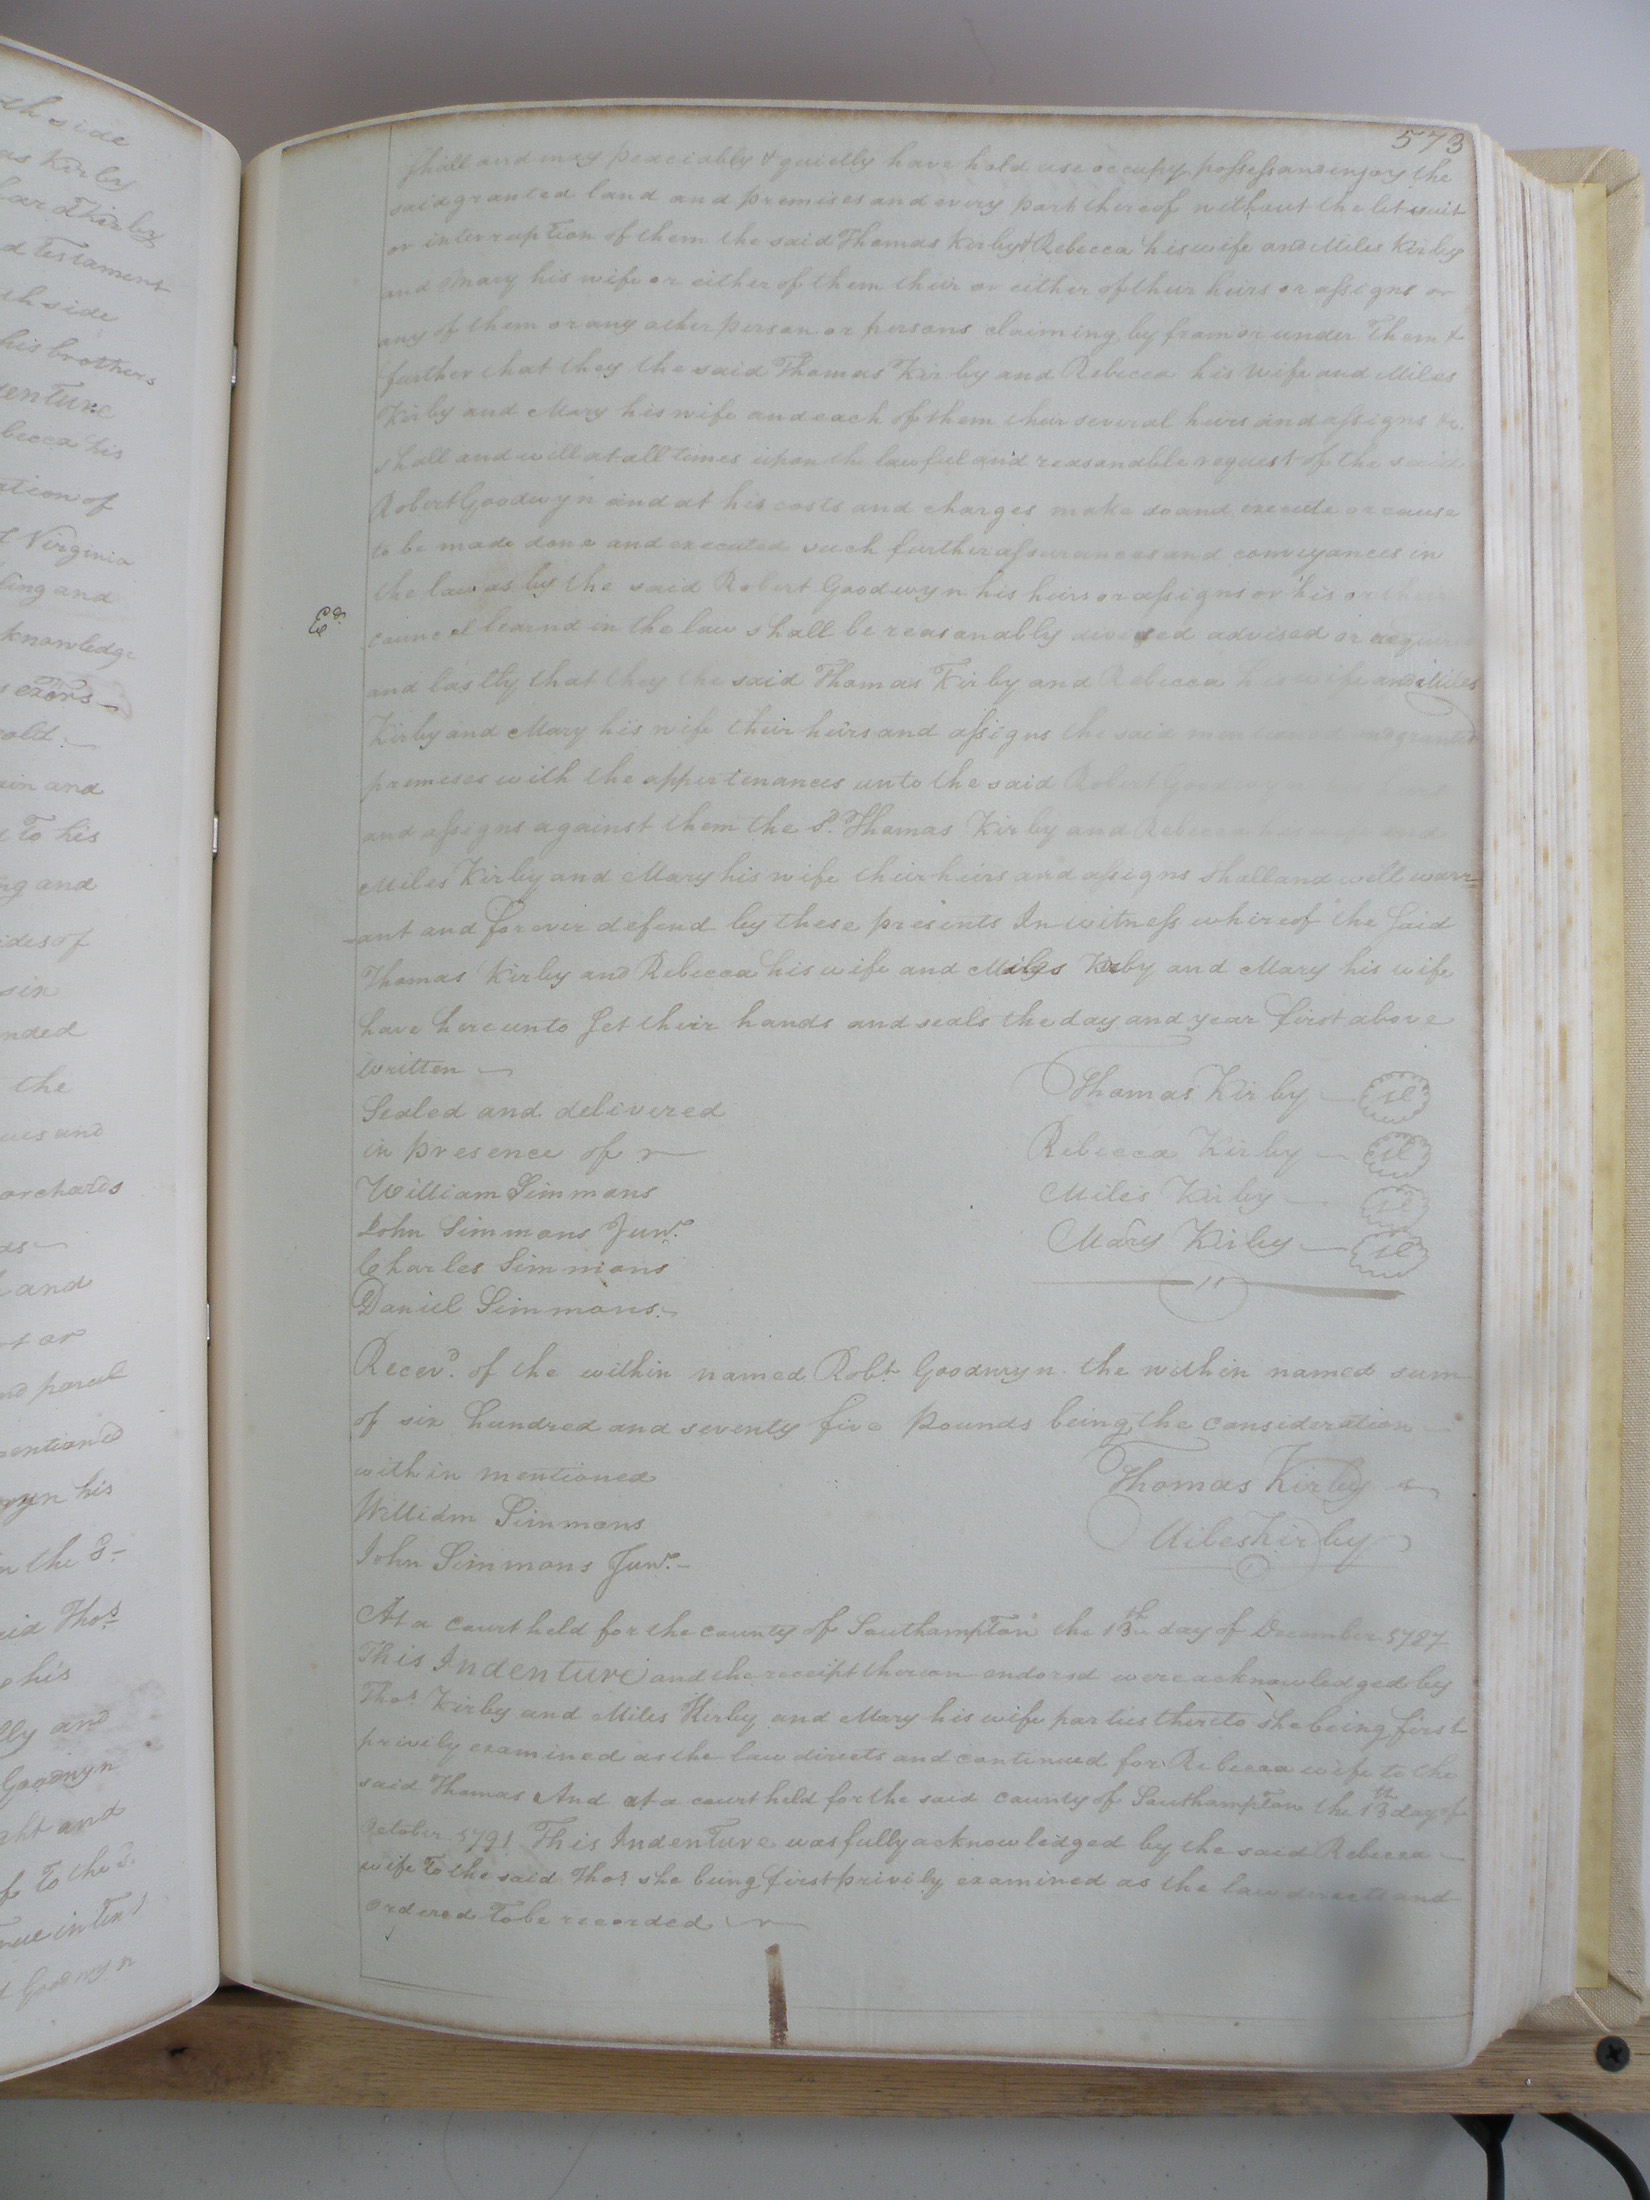 th side
as Kirby
lard Kirby
d Testament
th side
his brothers
denture
becca his
ation of
t Virginia
ling and
knowledge
s exors
old
ain and
To his
ng and
ides of
six
nded
the
ues and
orchards
as
and
rt or
nd parcel
mentioned
wyn his
n the sd
aid Thos
his
lly and
Goodwyn
ght and
To the sd
rue intent
Goodwyn
573
shall and may peaciably & quietly have hold use occupy possess and enjoy the
said granted land and premises and every part thereof without the let suit
or interruption of them the said Thomas Kirby & Rebecca his wife and Miles Kirby
and Mary his wife or either of them their or either of their heirs or assigns or
any of them or any other person or persons claiming by from or under Them &
further that they the said Thomas Kirby and Rebecca his wife and Miles
Kirby and Mary his wife and each of them their several heirs and assigns &c.
shall and will at all times upon the lawful and reasonable request of the said
Robert Goodwyn and at his costs and charges make do and execute or cause
to be made done and executed such further assurances and conveyances in
Ed.
the law as by the said Robert Goodwyn his heirs or assigns or his or their
councel learnd in the law shall be reasonably devised advised or
and lastly that they the said Thomas Kirby and Rebecca his wife and Miles
Kirby and Mary his wife their heirs and assigns the said mentioned and granted
premises with the appertenances unto the said Robert Goodwyn
and assigns against them the sd. Thomas Kirby and Rebecca his wife and
Miles Kirby and Mary his wife their heirs and assigns shall and will warr=
=ant and forever defend by these presents In witness whireof the said
Thomas Kirby and Rebecca his wife and Miles Kirby and Mary his wife
have hereunto set their hands and seals the day and year first above
written
Sealed and delivered
in presence of
William Simmons
John Simmons Junr.
Charles Simmons
Daniel Simmons
Thomas Kirby sl
Rebecca Kirby sl
Miles Kirby sl
Mary Kirby sl
Recevd. of the within named Robt. Goodwyn the within named sum
of six hundred and seventy five pounds being the consideration
within mentioned
Thomas Kirby
William Simmons
Miles Kirby
John Simmons Junr.
At a court held for the county of Southampton the 13th day of December 1787
This Indenture and the receipt thereon endorsd were acknowledged by
Thos. Kirby and Miles Kirby and Mary his wife parties thereto she being first
privily examined as the law directs and continued for Rebecca wife to the
said Thomas And at a court held for the said county of Southampton the 13th day of
October 1791 This Indenture was fully acknowledged by the said Rebecca
wife To the said Thos. she being first privily examined as the law directs and
ordered To be recorded